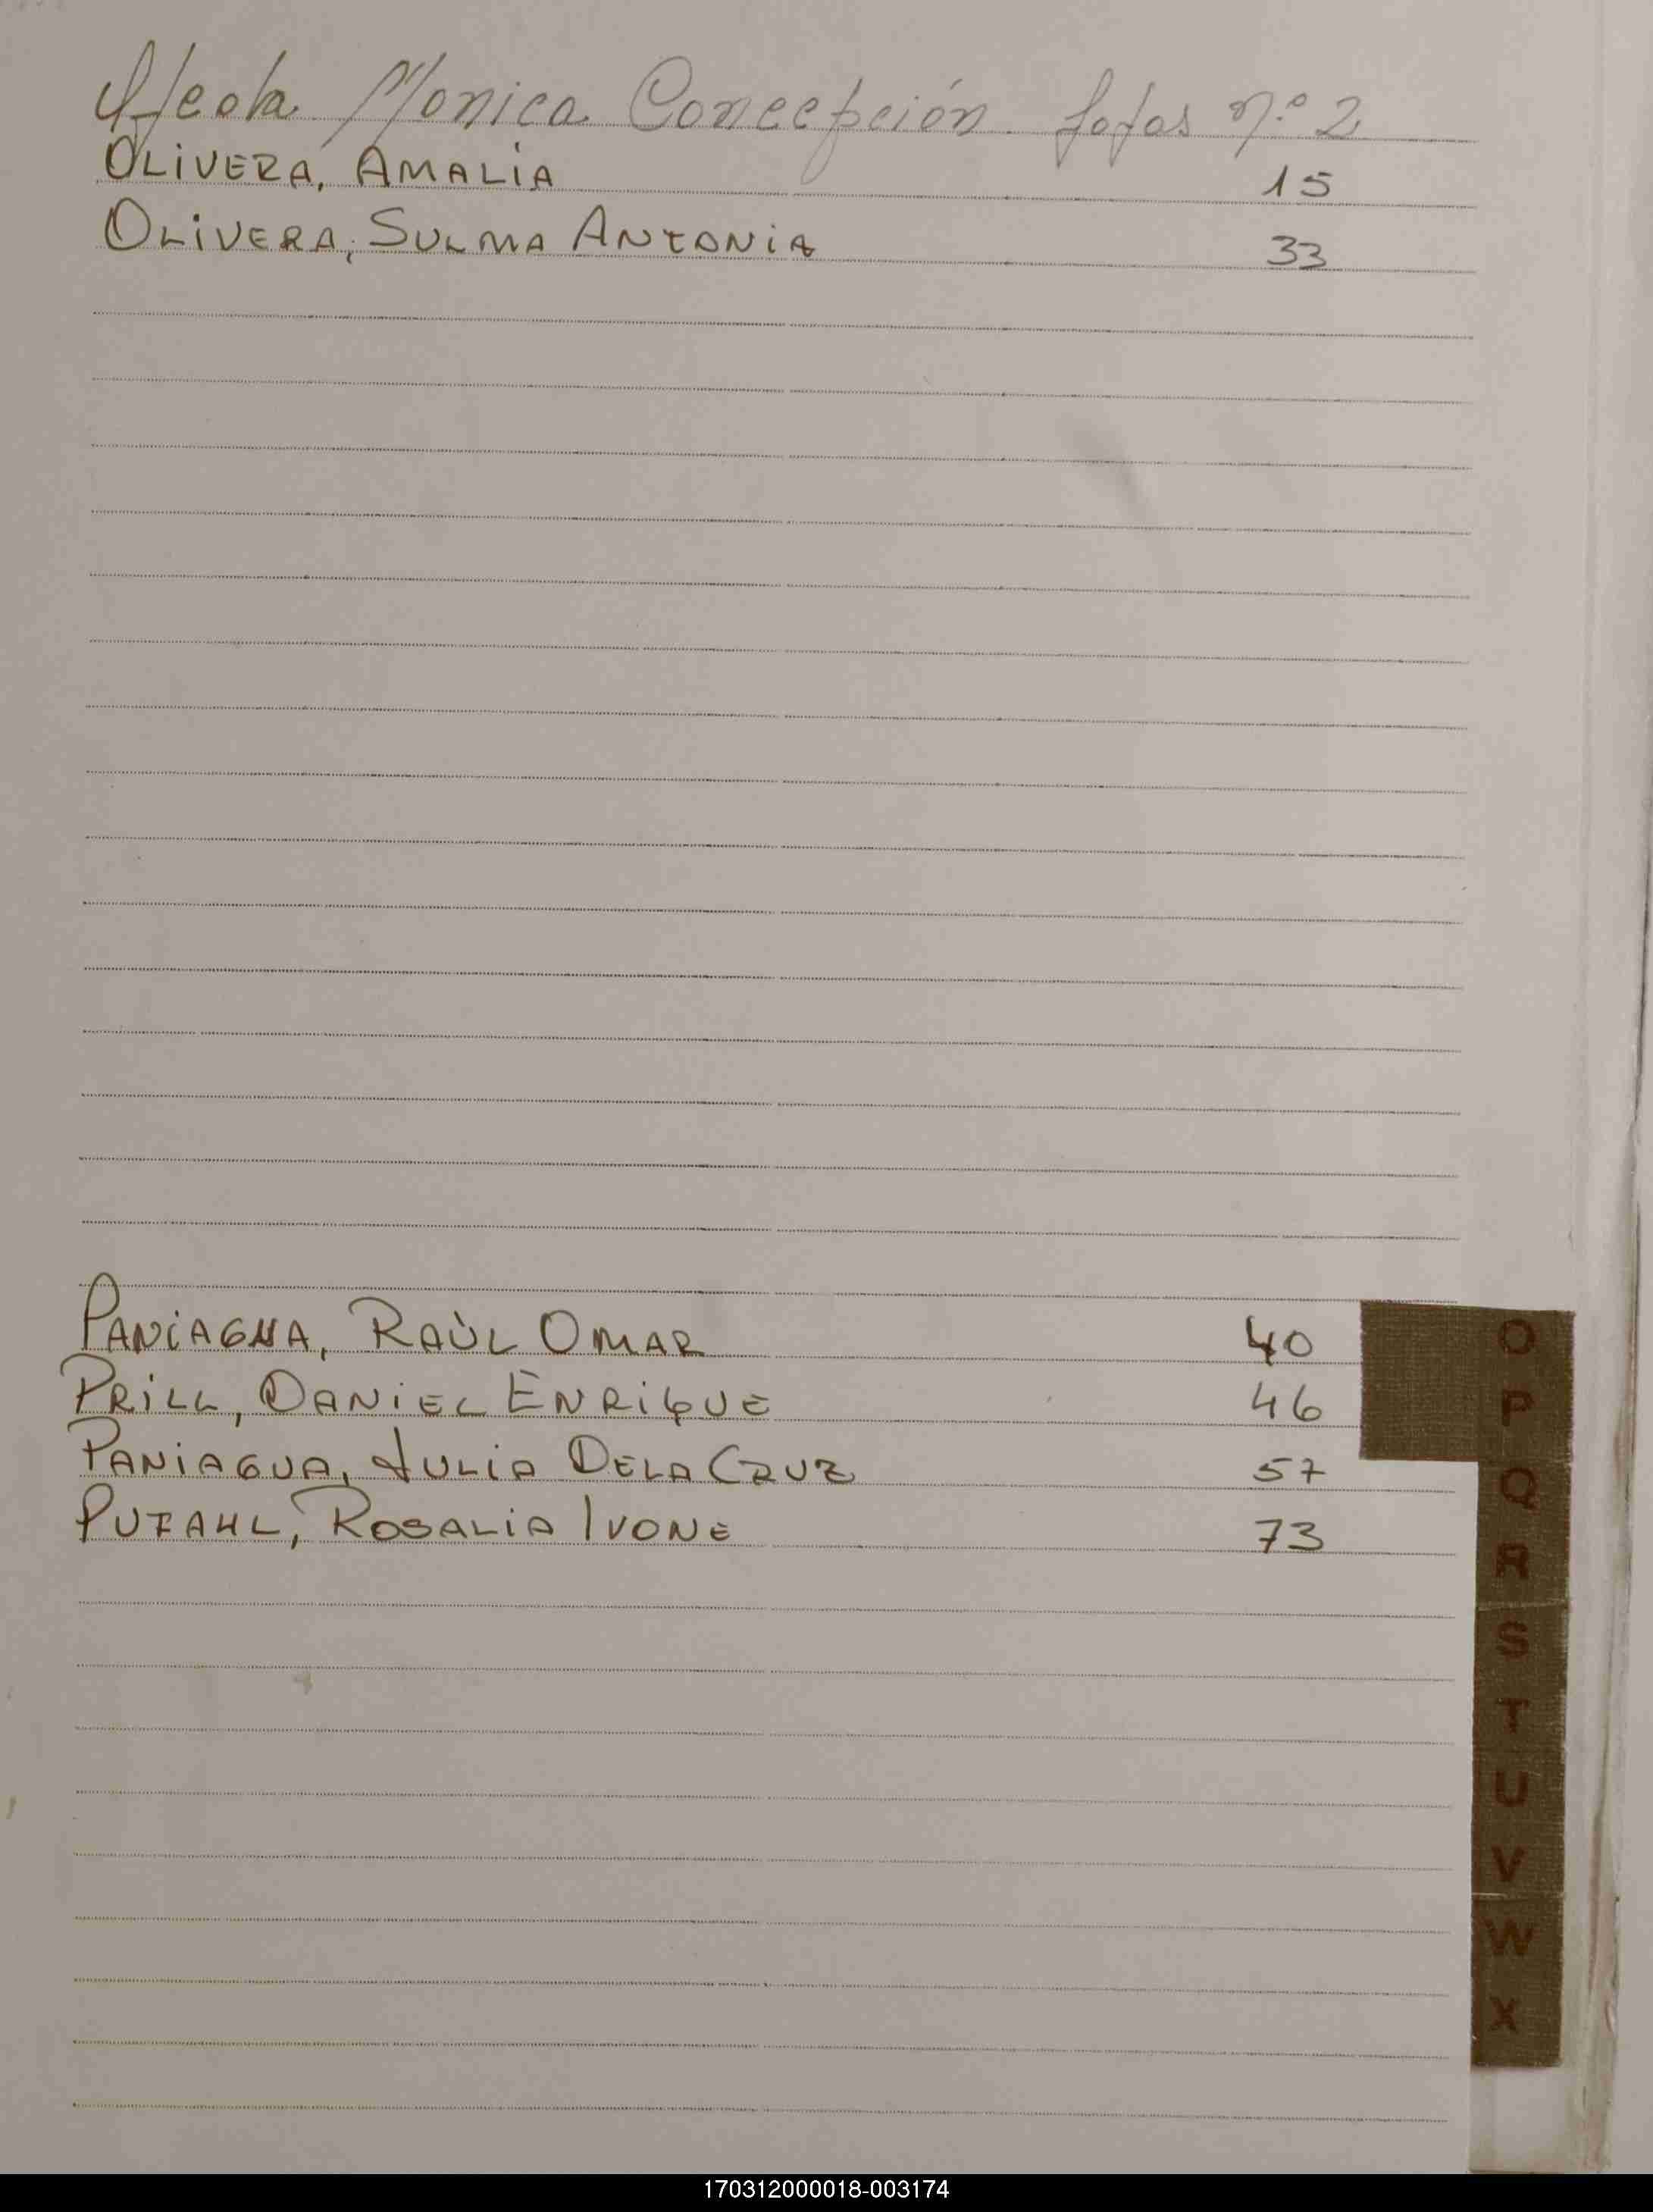 Ojeda Monica Concepción. fojas nº 2
OLIVERA, AMALIA 15
OLIVERA, SULMA ANTONIA 33
PANIAGUA, RAÙL OMAR 40
PRILL, DANIEL ENRIQUE 46
PANIAGUA, JULIA DELA CRUZ 57
PUFAHL, ROSALIA IVONE 73
O
P
Q
R
S
T
U
V
W
X
170312000018-003174